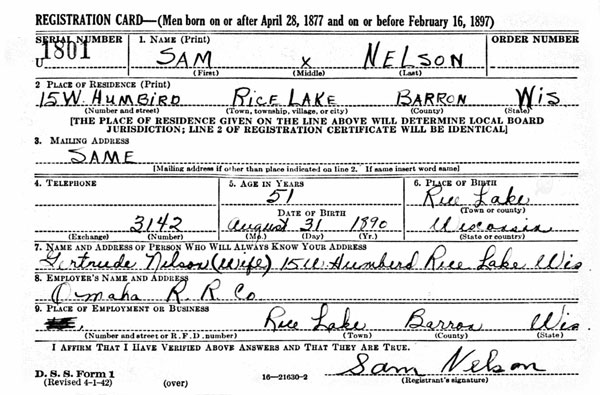 REGISTRATION CARD—(Men born on or after April 28, 1877 and on or before February 16, 1897)
SERIAL NUMBER 1. NAME (Print) ORDER NUMBER
U 1801 SAM x NELSON
(First) (Middle) (Last)
2 PLACE OF RESIDENCE (Print)
15 W. HUMBIRD RICE LAKE BARRON WIS
(Number and street) (Town, township, village, or city) (County) (State)
[THE PLACE OF RESIDENCE GIVEN ON THE LINE ABOVE WILL DETERMINE LOCAL BOARD
JURISDICTION; LINE 2 OF REGISTRATION CERTIFICATE WILL BE IDENTICAL]
3. MAILING ADDRESS
SAME
[Mailing address if other than place indicated on line 2. If same insert word same]
4. TELEPHONE 5. AGE IN YEARS 6. PLACE OF BIRTH
51 Rice Lake
DATE OF BIRTH (Town or county)
3142 August 31 1890 Wisconsin
(Exchange) (Number) (Mo.) (Day) (Yr.) (State or country)
7. NAME AND ADDRESS OF PERSON WHO WILL ALWAYS KNOW YOUR ADDRESS
Gertrude Nelson (Wife) 15 W Humbird Rice Lake Wis
8. EMPLOYER'S NAME AND ADDRESS
Omaha R. R. Co.
9. PLACE OF EMPLOYMENT OR BUSINESS
Rice Lake Barron Wis.
(Number and street or R. F. D. number) (Town) (County) (State)
I AFFIRM THAT I HAVE VERIFIED ABOVE ANSWERS AND THAT THEY ARE TRUE.
Sam Nelson
D. S. S. Form 1 (Registrant's signature)
(Revised 4-1-42) (over) 16—21630-2